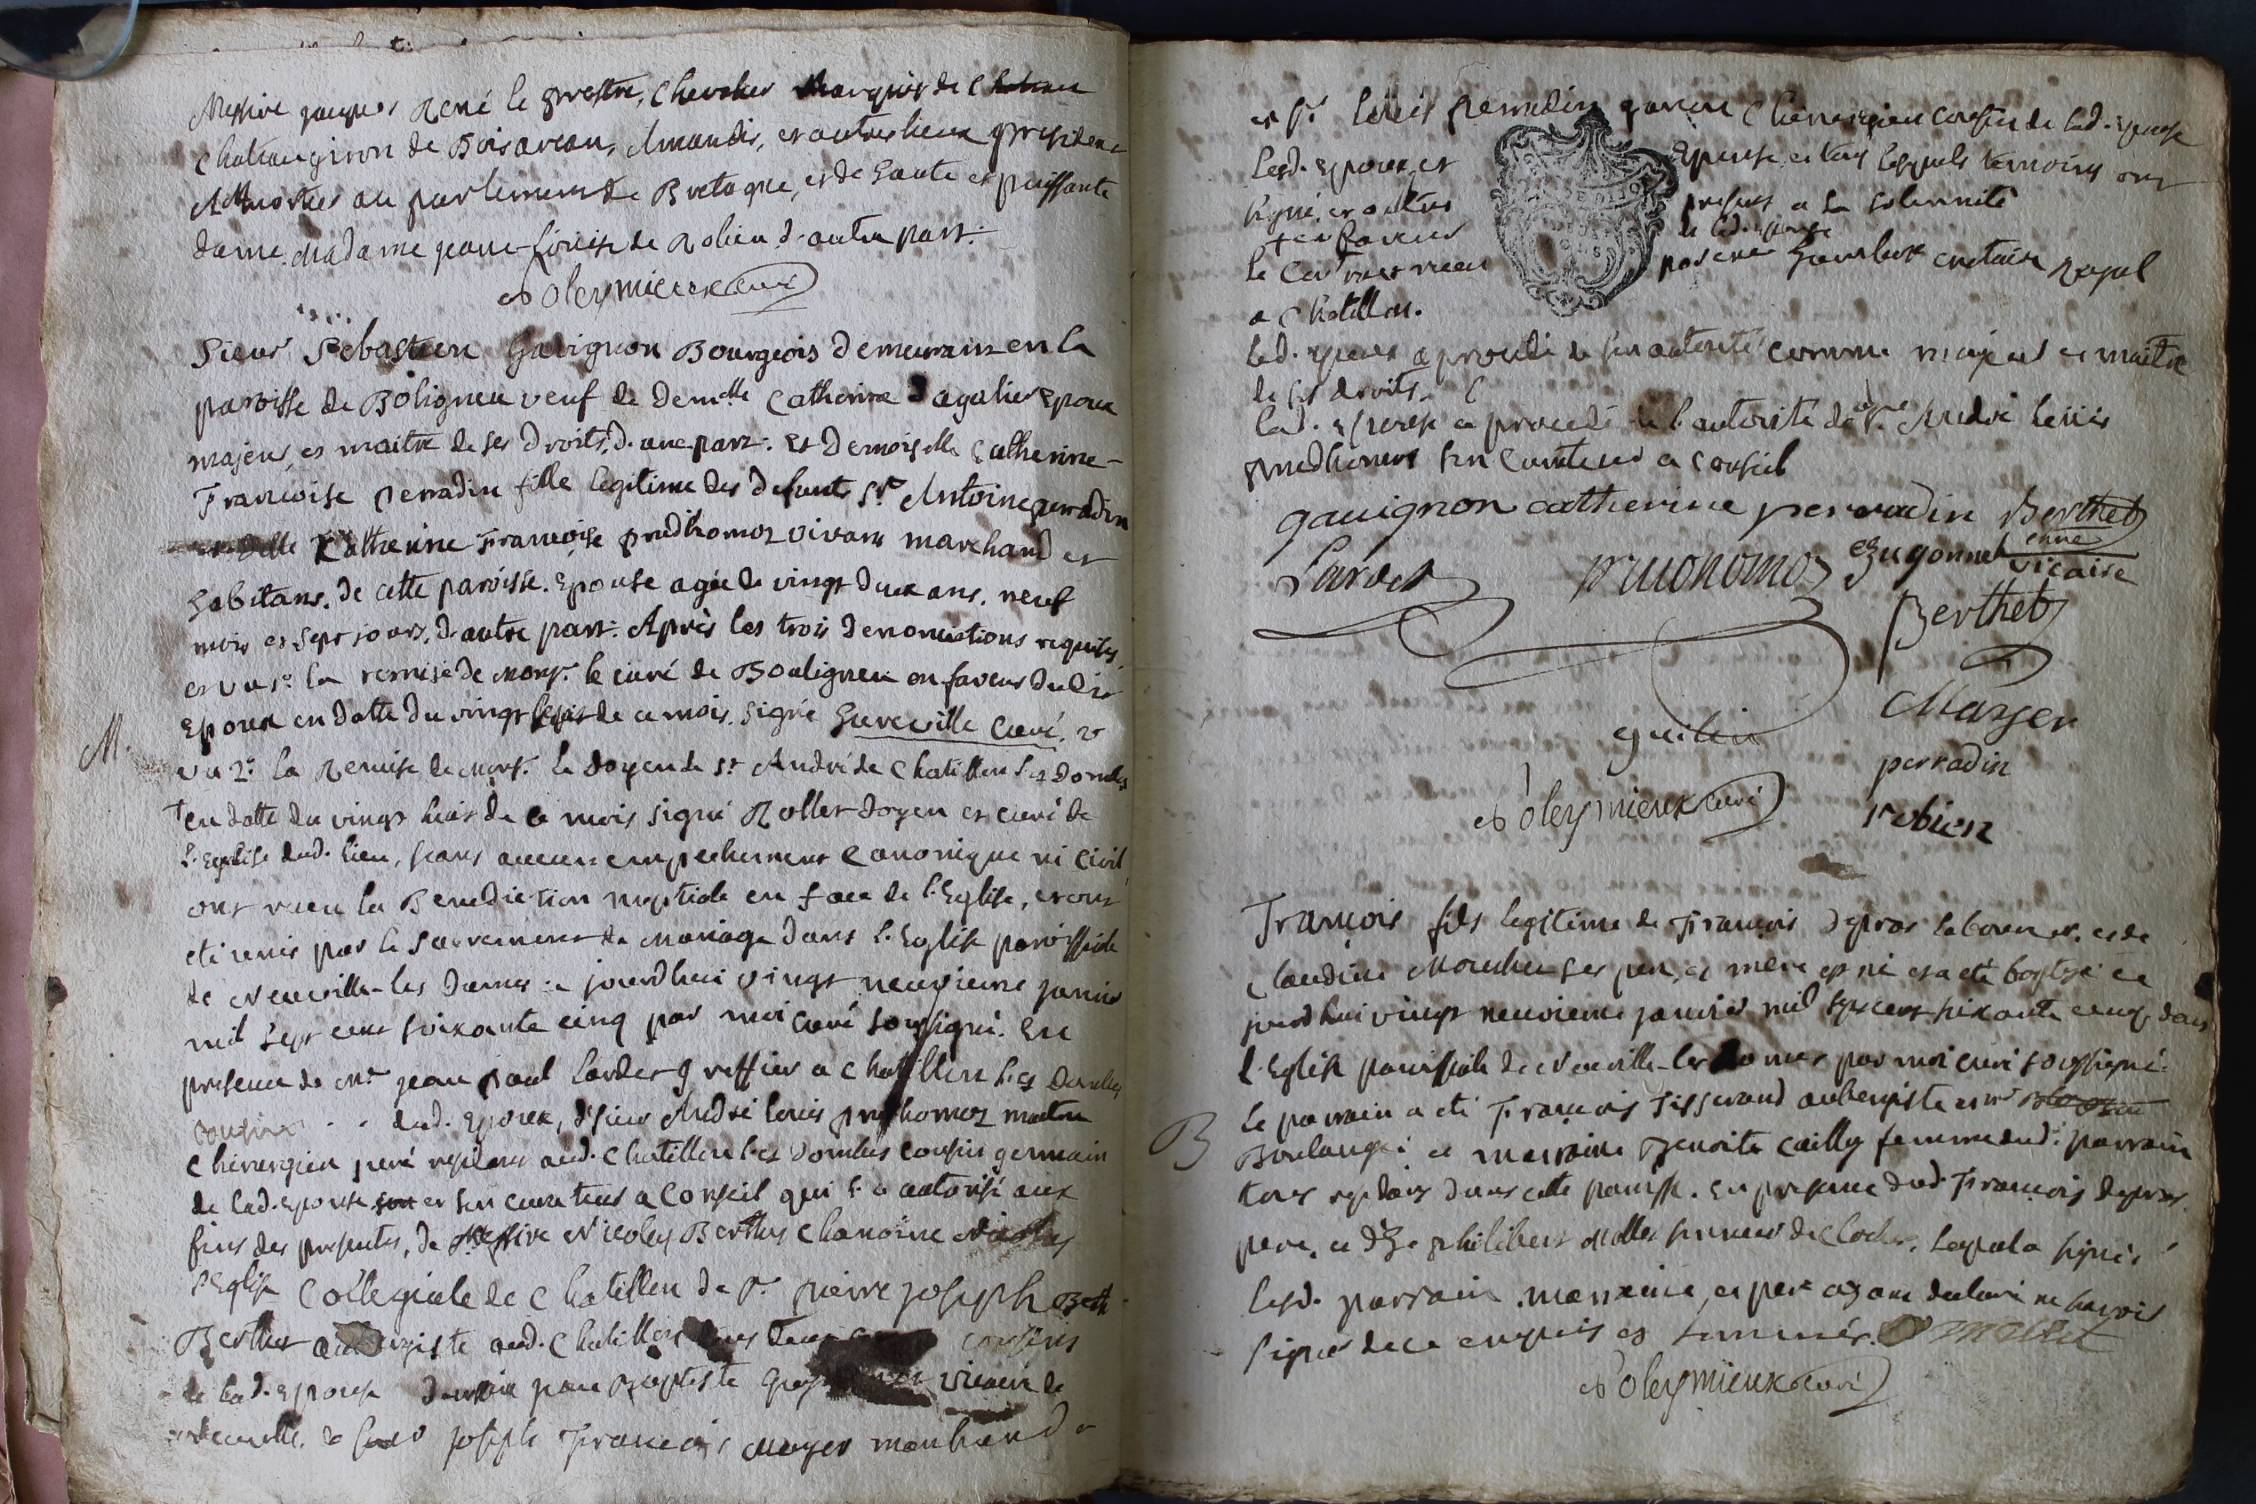 Messire jacques René le prestre, Chevalier Marquis de
Chateaugiron de Boisoreau, Amandis, et autres lieux president
A Mortier au parlement de Bretagne, et de haute et puissante
dame Madame jeane-Louise de Robien d'autre part.
Poleymieux curé
Sieur Sebastien Gavignon Bourgeois demeurant en la
paroisse de Boligneu veuf de demlle Catherine dagalier Epoux
majeur, et maitre de ses droits, d'une part. Et Demoiselle Catherine-
Francoise perradin fille legitime des defunts sr. Antoine perradin
et Dlle Catherine Françoise prudhomoz vivans marchand et
habitans de cette paroisse. Epouse agée de vingt deux ans, neuf
mois et sept jours, d'autre part. Après les trois denonciations requises,
et vu 1º. la remise de monsr. le curé de Bouligneu en faveur dudit
Epoux en datte du vingt sept de ce mois, signé Gureville curé,
M.
vu 2º. la Remise de Monsr. le doyen de st André de Chatillon les Dombes
en datte du vingt huit de ce mois signé Rollet doyen et curé de
l'Eglise dud. lieu, sans aucun empechement canonique ni civil
ont reçu la Benediction nuptiale en face de l'Eglise, et ont
eté unis par le sacrement de Mariage dans l'Eglise paroissiale
de Neuville-les dames ce jourdhui vingt neuvieme janvier
mil sept cent soixante cinq par moi curé soussigné. En
presence de mr. jean paul Lardet greffier a Chatillon les Dombes
cousin dud. Epoux, dsieur André louis prudhomoz maitre
Chirurgien juré residant aud. Chatillon les Dombes cousin germain
de lad. Epouse et son curateur a conseil qui l'a autorisé aux
fins des presentes, de Messire Nicolas Berthet Chanoine
l'Eglise Collegiale de Chatillon de sr. pierre joseph
Berthet aubergiste aud. Chatillon tous deux cousins
de lad. Epouse jean Baptiste vicaire de
Neuville, de sieur joseph François Mayer marchand
et sr. Louis perradin garcon Chirurgien cousin de lad. Epouse
Lesd. Epoux et Epouse et tous lesquels temoins ont
signé, et autres presents a la solemnité
de lad. Epouse
le Contrat recu par me Humbert notaire Royal
a Chatillon.
Led. Epoux a procedé de son autorité comme majeur et maitre
de ses droits.
Lad. Epouse a procedé de l'autorité de sr. André louis
prudhomoz son curateur a conseil
gauignon catherine perradin Berthet
Lardet prudhomoz Gugonnet vicaire
Berthet
Mayer
guilin
perradin
Poleymieux curé
robien
François fils legitime de François depras laboureur, et de
Claudine Moucher ses pere, et mere est né et a eté baptisé ce
jourdhui vingt neuvieme janvier mil sept cent soixante cinq dans
l'Eglise paroissiale de Neuville-les dames par moi curé soussigné.
Le parrain a eté François Tisserand aubergiste et
B
Boulanger et marraine Benoite Cailly femme dud. parrain
tous residans dans cette paroisse. En presence dud. François depras
pere, et de philibert Mollet sonneur de cloches, lequel a signé,
lesd. parrain, marraine, et pere ayant declaré ne savoir
signer de ce enquis et sommés. Mollet
Poleymieux curé